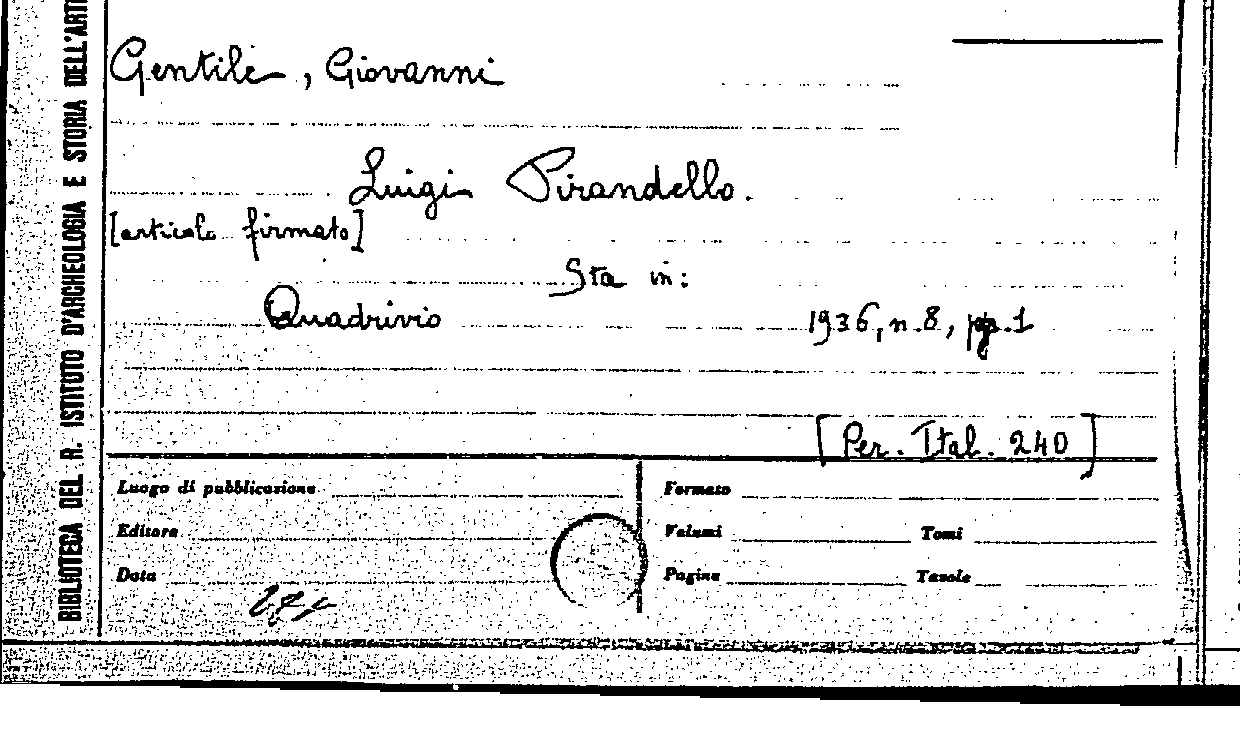 Gentile, Giovanni
Luigi Pirandello.
[articolo firmato]
Sta in:
Quadrivio 1936, n.8, pg.1
[Per. Ital. 240]
Luogo di pubblicazione Formato
Editore Volumi Tomi
Data Pagine Tavole
BIBLIOTECA DEL R. ISTITUTO D'ARCHEOLOGIA E STORIA DELL'ART